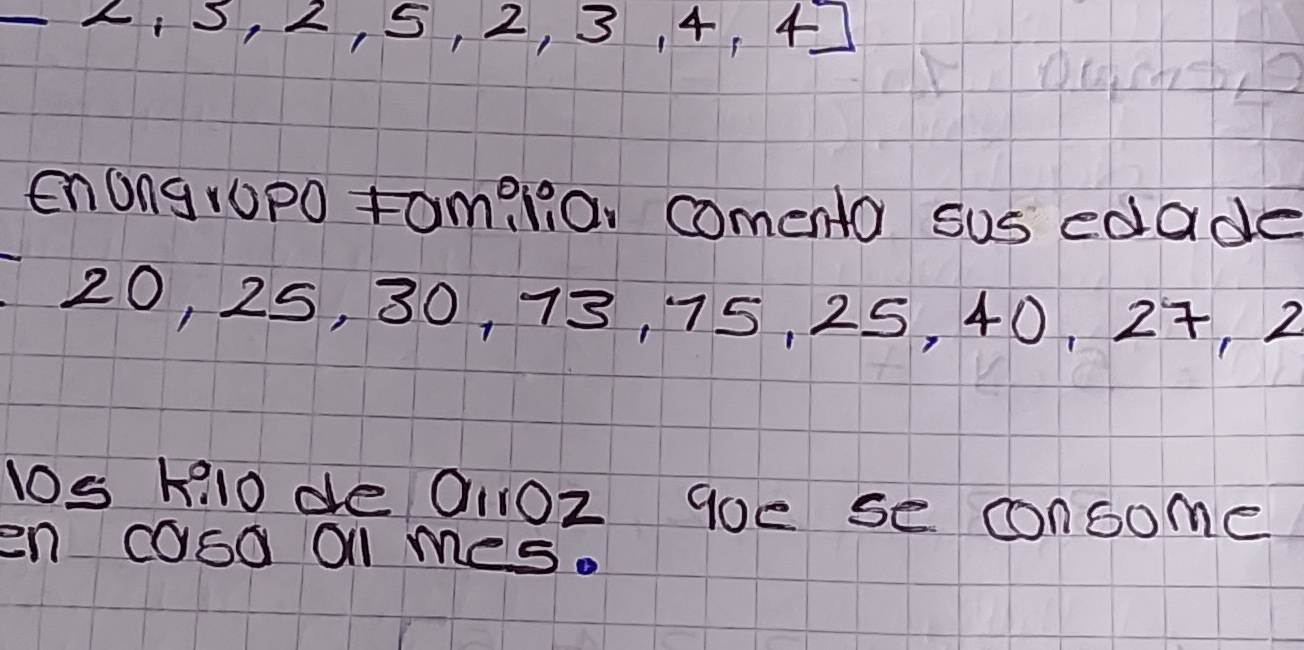 2, 3, 2, 5, 2, 3, 4, 4]
En un grupo familiar comenta sus edade
20, 25, 30, 13, 15, 25, 40, 27, 2
los kilo de arroz que se consume
en casa al mes.